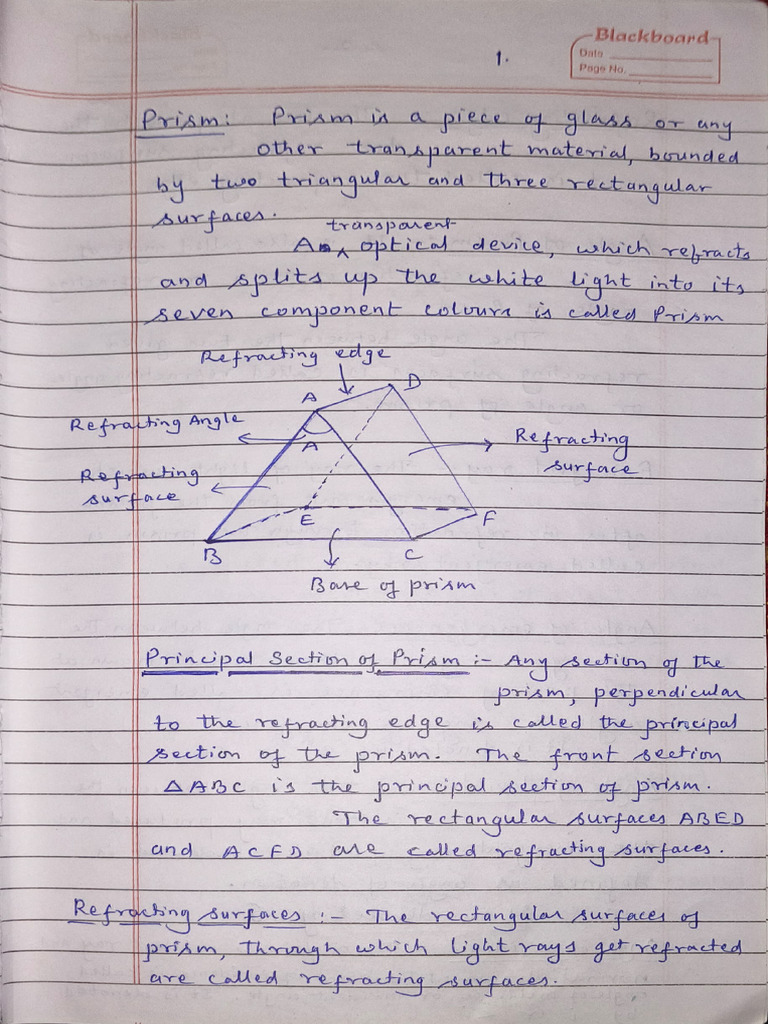 Blackboard
Date
Page No.
1.
Prism: Prism is a piece of glass or any
other transparent material, bounded
by two triangular and three rectangular
surfaces.
transparent
A optical device, which refracts
and splits up the white light into its
seven component colours is called Prism
Refracting edge
A
D
Refracting Angle
A
Refracting
surface
Refracting
surface
E
F
B
C
Base of prism
Principal Section of Prism :- Any section of the
prism, perpendicular
to the refracting edge is called the principal
section of the prism. The front section
△ABC is the principal section of prism.
The rectangular surfaces ABED
and ACFD are called refracting surfaces.
Refracting surfaces :- The rectangular surfaces of
prism, through which light rays get refracted
are called refracting surfaces.